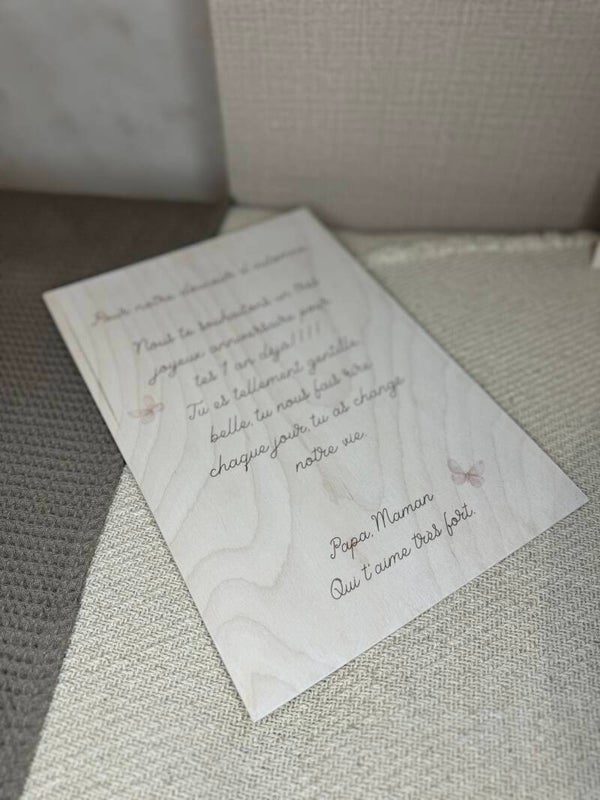 Pour notre douceur d'automne
Nous te souhaitons un très
joyeux anniversaire pour
tes 1 an déja!!!!
Tu es tellement gentille,
belle, tu nous fais rire
chaque jour, tu as changé
notre vie.
Papa, Maman
Qui t'aime très fort.